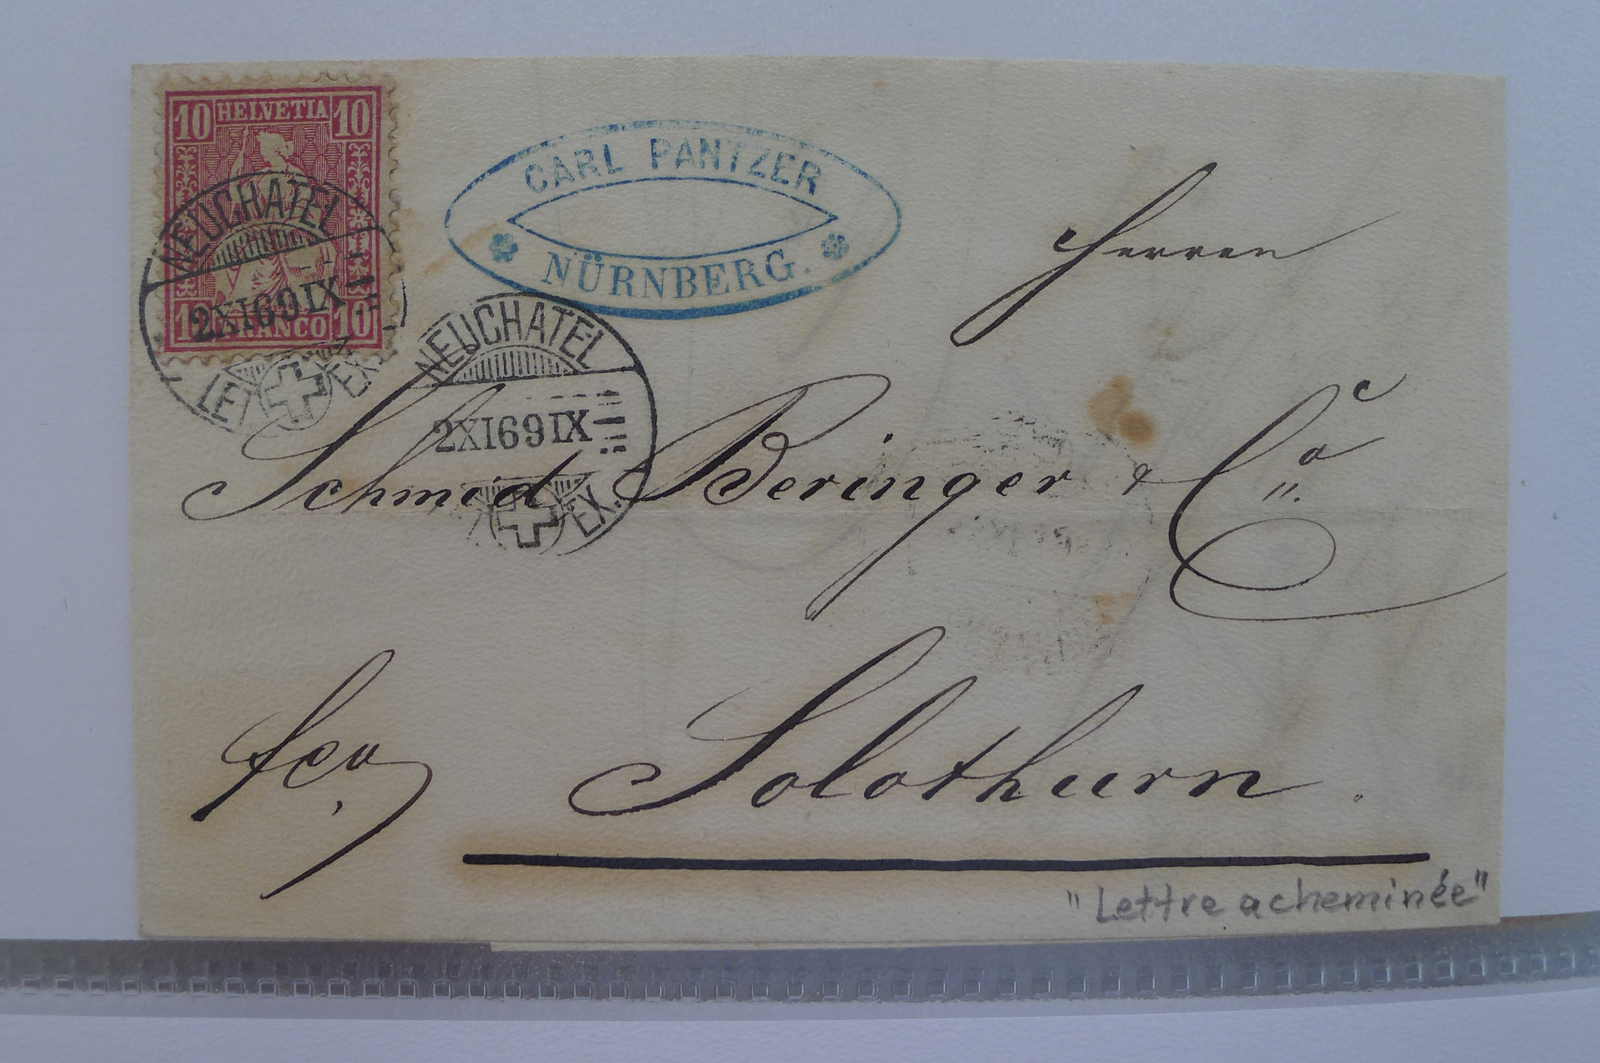 10 HELVETIA 10
10 FRANCO 10
NEUCHATEL
2XI69IX
LET EX.
CARL PANTZER
NÜRNBERG.
NEUCHATEL
2XI69IX
EX.
Herren
Schmid Beringer & Co
fco,
Solothurn.
"Lettre acheminée"